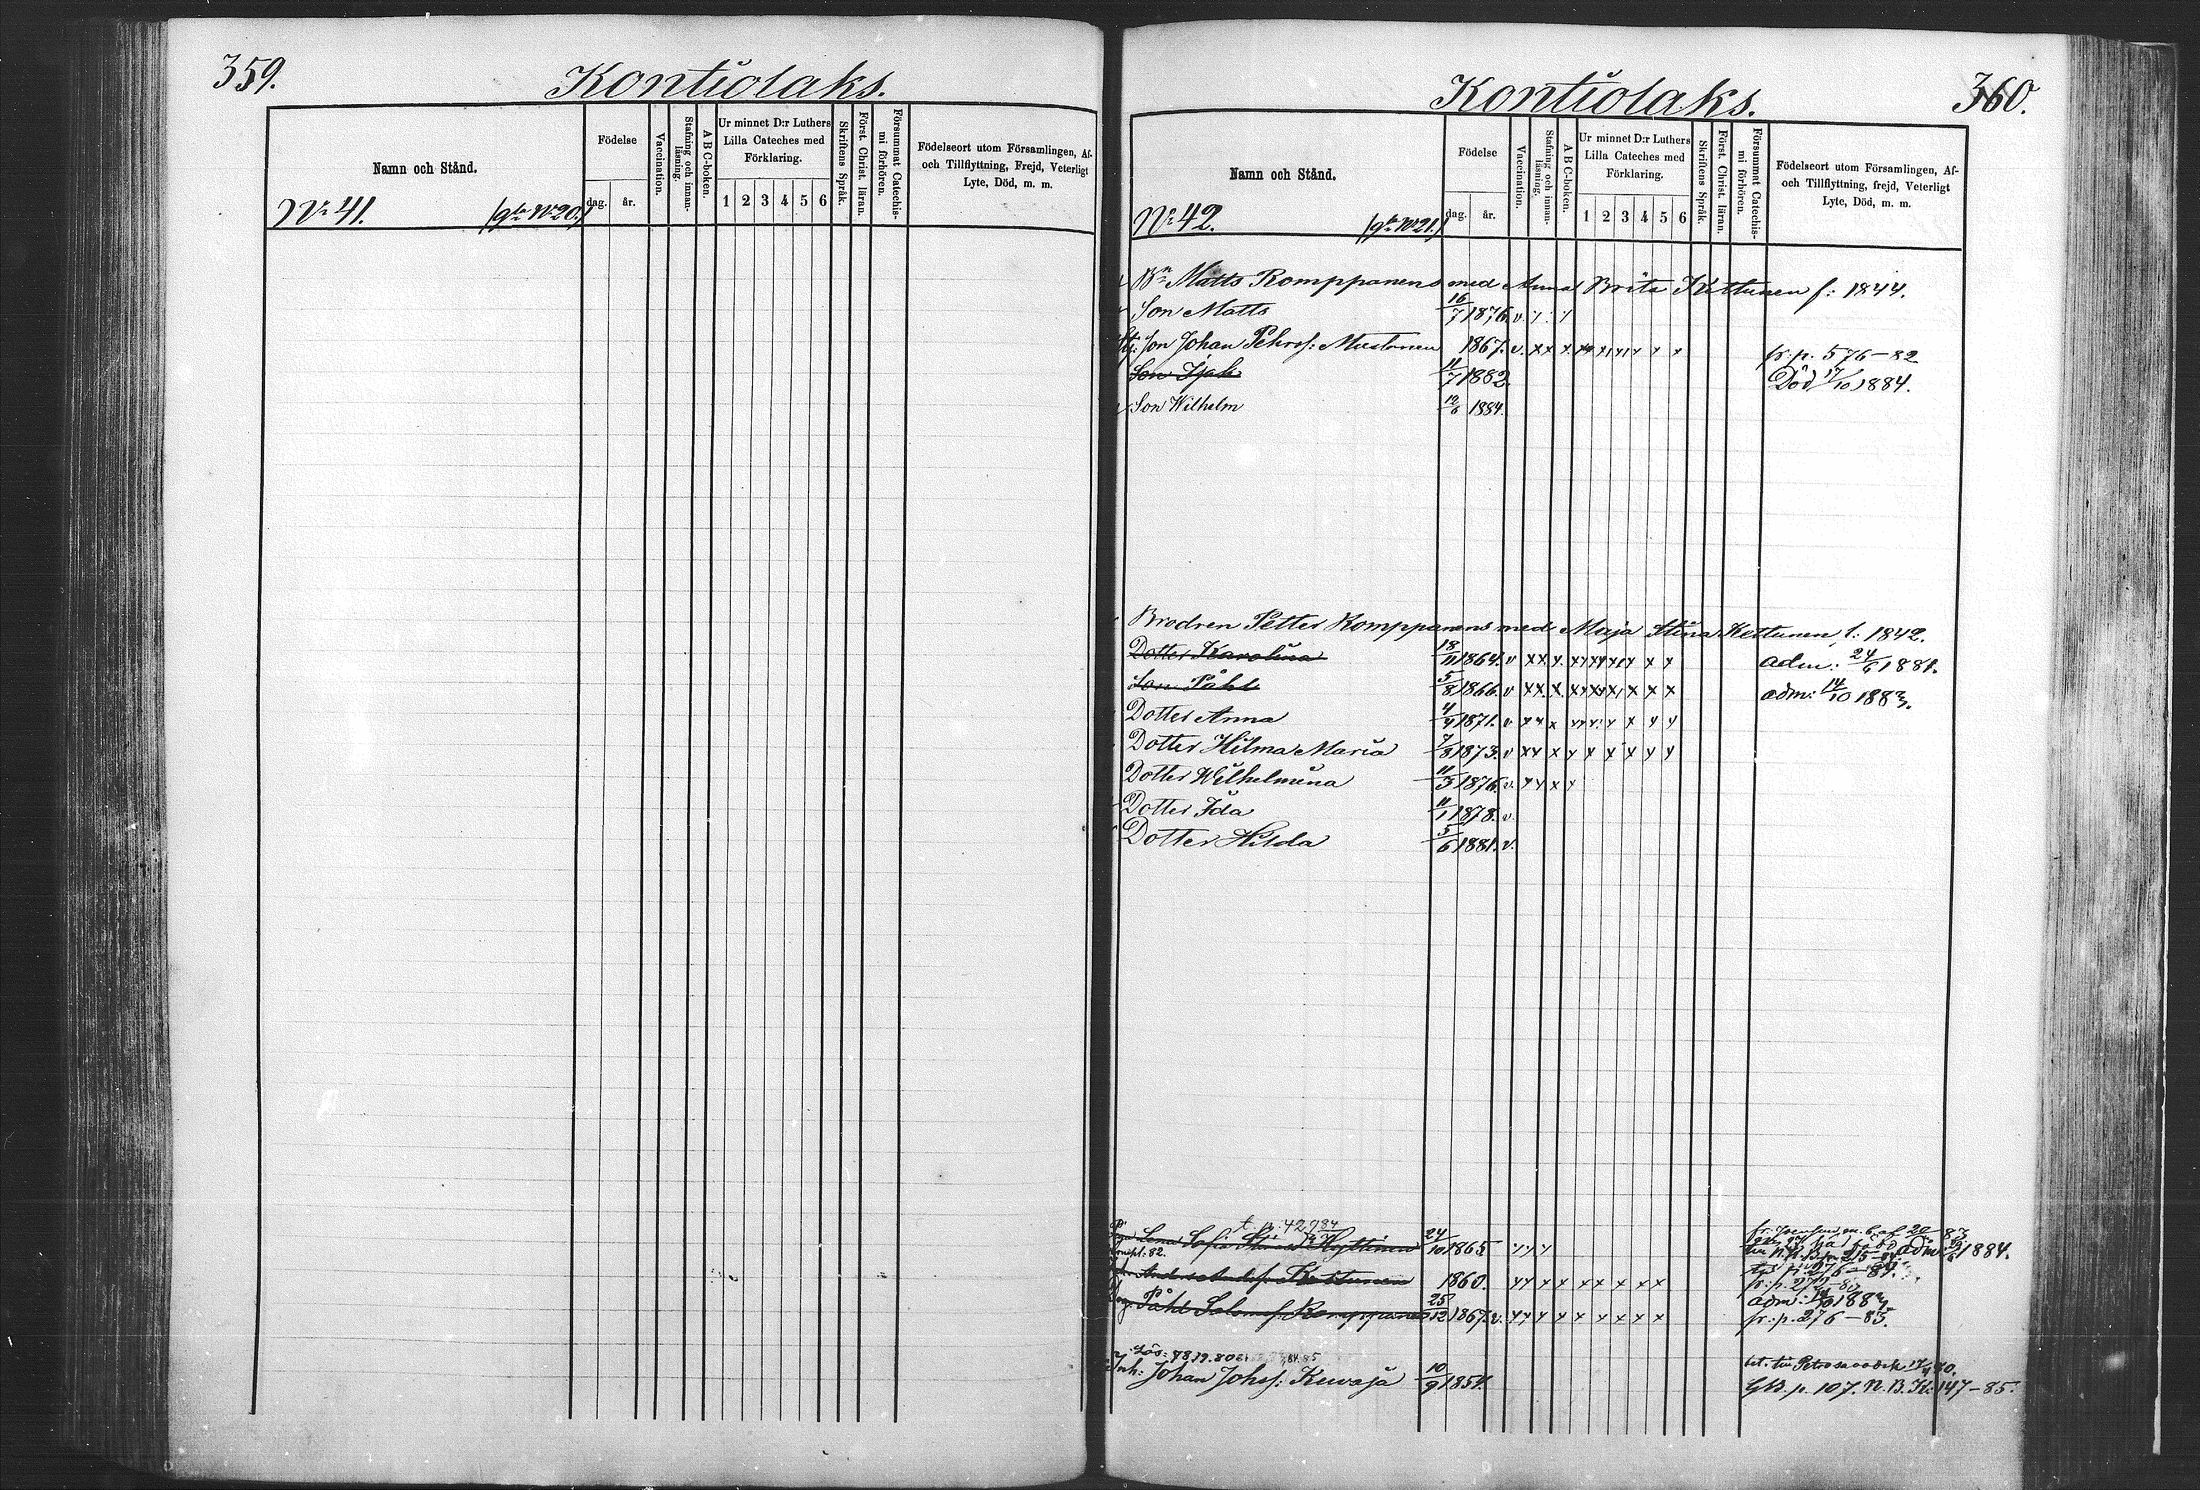 359.
Kontiolaks.
Namn och Stånd.
Födelse
dag. år.
Vaccination.
Stafning och innanläsning.
ABC-boken.
Ur minnet D:r Luthers Lilla Cateches med Förklaring.
1 2 3 4 5 6
Skriftens Språk.
Först. Christ. läran.
Försummat Catechismi förhören.
Födelseort utom Församlingen, Af- och Tillflyttning, Frejd, Veterligt Lyte, Död, m. m.
No 41. (gla No 20.)
Kontiolaks.
360.
Namn och Stånd.
Födelse
dag. år.
Vaccination.
Stafning och innanläsning.
ABC-boken.
Ur minnet D:r Luthers Lilla Cateches med Förklaring.
1 2 3 4 5 6
Skriftens Språk.
Först. Christ. läran.
Försummat Catechismi förhören.
Födelseort utom Församlingen, Af- och Tillflyttning, frejd, Veterligt Lyte, Död, m. m.
No 42. (gla No 21.)
Bn Matts Romppanens med Anna Brita Kettunen f: 1844.
Son Matts 16/7 1876. v.
Son Johan Pehrsf: Mustonen 1867. v. x x x fr. p. 576-82
Son Isak 11/7 1882. Död 17/10 1884.
Son Wilhelm 12/6 1884.
Brodren Petter Romppanens med Maja Stina Kettunen f: 1842.
Dotter Karolina 18/11 1864. v x x x adm: 24/6 1881.
Son Påhl 5/8 1866. v x x x adm: 14/10 1883.
Dotter Anna 4/4 1871. v.
Dotter Hilma Maria 7/8 1873. v x x x
Dotter Wilhelmina 11/3 1876. v.
Dotter Ida 11/1 1878. v.
Dotter Hilda 5/6 1881. v.
t. p. 429 84
Lena Sofia Hyttinen 24/10 1865 adm 1884.
Kettunen 1860. fr: p. 272-82
Påhl Salomsf. Romppanen 25/12 1867. v. adm: 14/10 1883. fr: p. 276-83.
Lös: 78.79.80.
Inh: Johan Johsf: Kuvaja 10/9 1854. bet. till Petrosavodsk
p. 107. N. B. 147-85.